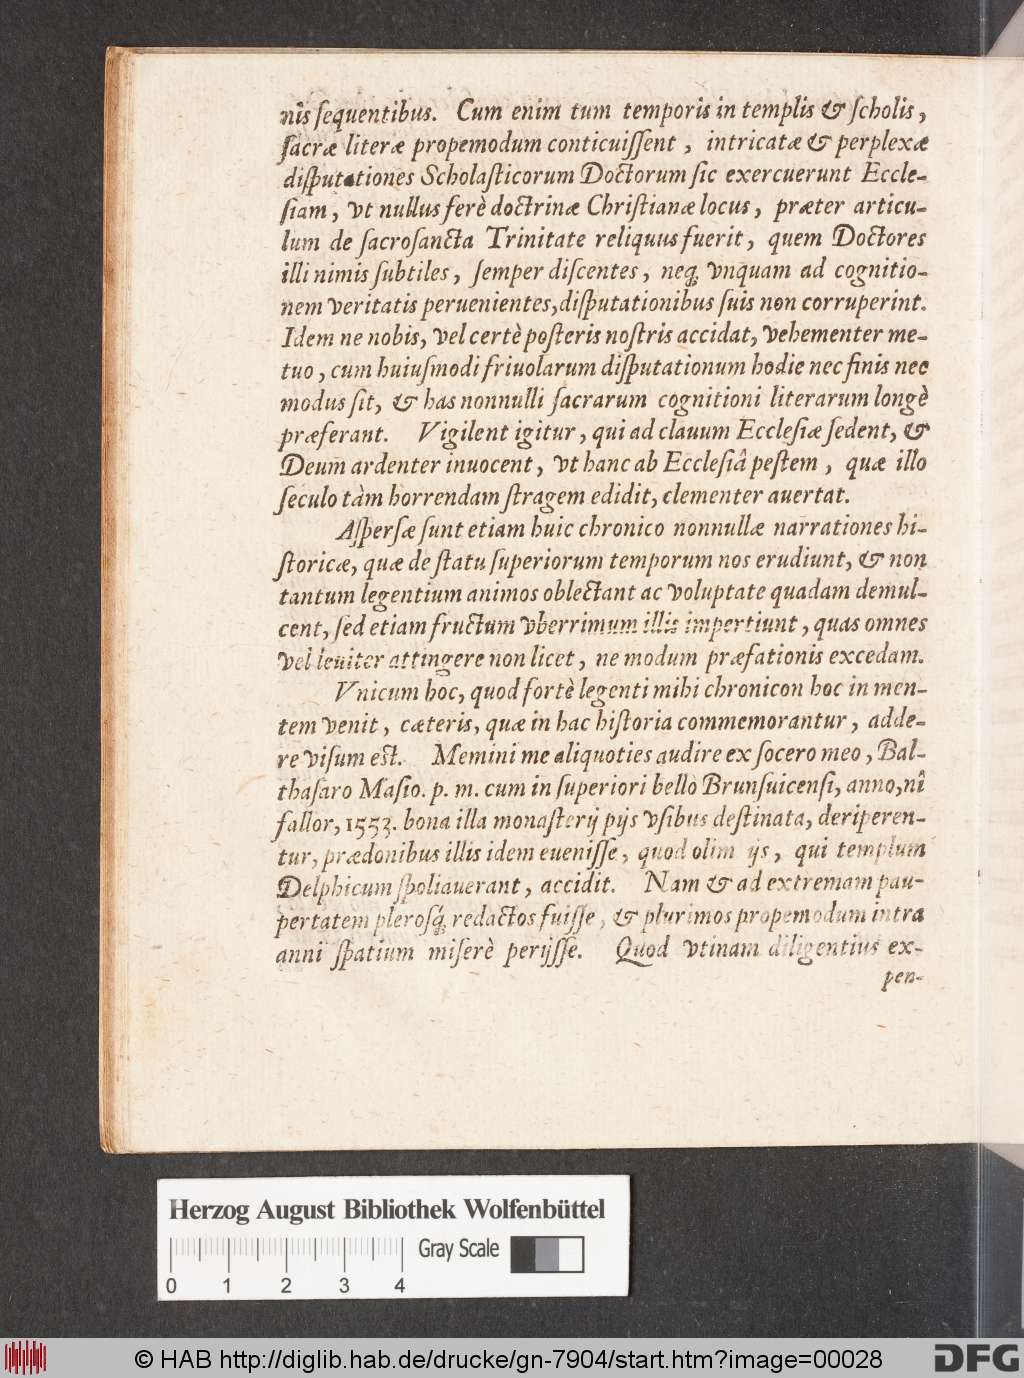 nis ſequentibus. Cum enim tum temporis in templis & ſcholis,
ſacræ literæ propemodum conticuiſſent, intricatæ & perplexæ
diſputationes Scholaſticorum Doctorum ſic exercuerunt Eccle-
ſiam, vt nullus ferè doctrinæ Chriſtianæ locus, præter articu-
lum de ſacroſancta Trinitate reliquus fuerit, quem Doctores
illi nimis ſubtiles, ſemper diſcentes, neq; vnquam ad cognitio-
nem veritatis peruenientes, diſputationibus ſuis non corruperint.
Idem ne nobis, vel certè poſteris noſtris accidat, vehementer me-
tuo, cum huiuſmodi friuolarum diſputationum hodie nec finis nec
modus ſit, & has nonnulli ſacrarum cognitioni literarum longè
præferant. Vigilent igitur, qui ad clauum Eccleſiæ ſedent, &
Deum ardenter inuocent, vt hanc ab Eccleſiâ peſtem, quæ illo
ſeculo tàm horrendam ſtragem edidit, clementer auertat.
Aſperſæ ſunt etiam huic chronico nonnullæ narrationes hi-
ſtoricæ, quæ de ſtatu ſuperiorum temporum nos erudiunt, & non
tantum legentium animos oblectant ac voluptate quadam demul-
cent, ſed etiam fructum vberrimum illis impertiunt, quas omnes
vel leuiter attingere non licet, ne modum præfationis excedam.
Vnicum hoc, quod fortè legenti mihi chronicon hoc in men-
tem venit, cæteris, quæ in hac hiſtoria commemorantur, adde-
re viſum eſt. Memini me aliquoties audire ex ſocero meo, Bal-
thaſaro Maſio. p. m. cum in ſuperiori bello Brunſuicenſi, anno, nî
fallor, 1553. bona illa monaſterij pijs vſibus deſtinata, deriperen-
tur, prædonibus illis idem eueniſſe, quod olim ijs, qui templum
Delphicum ſpoliauerant, accidit. Nam & ad extremam pau-
pertatem pleroſq; redactos fuiſſe, & plurimos propemodum intra
anni ſpatium miſerè perijſſe. Quod vtinam diligentius ex-
pen-
Herzog August Bibliothek Wolfenbüttel
Gray Scale
0 1 2 3 4
© HAB http://diglib.hab.de/drucke/gn-7904/start.htm?image=00028
DFG